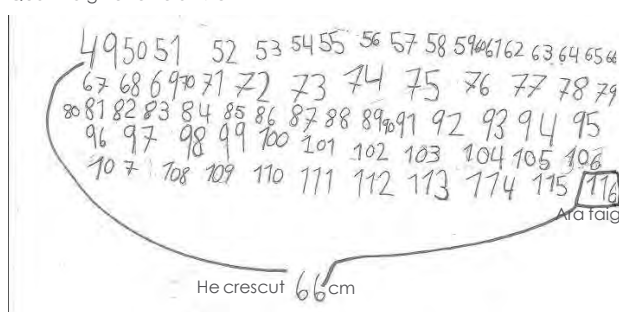 49 50 51 52 53 54 55 56 57 58 59 60 61 62 63 64 65 66
67 68 69 70 71 72 73 74 75 76 77 78 79
80 81 82 83 84 85 86 87 88 89 90 91 92 93 94 95
96 97 98 99 100 101 102 103 104 105 106
107 108 109 110 111 112 113 114 115 116
Ara faig
He crescut 66 cm